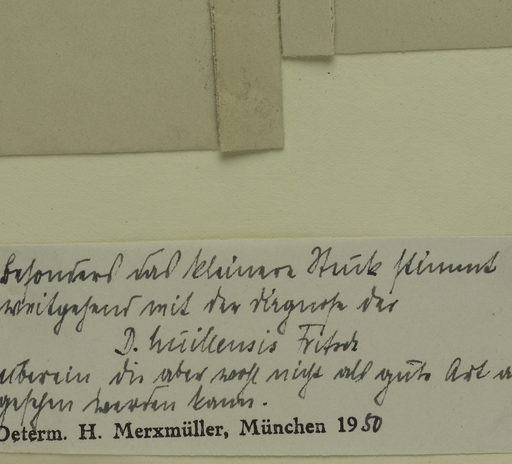 Besonders das kleinere Stück stimmt
weitgehend mit der Diagnose der
D. huillensis Fritsch
überein, die aber wohl nicht als gute Art a
gesehen werden kann.
Determ. H. Merxmüller, München 1950